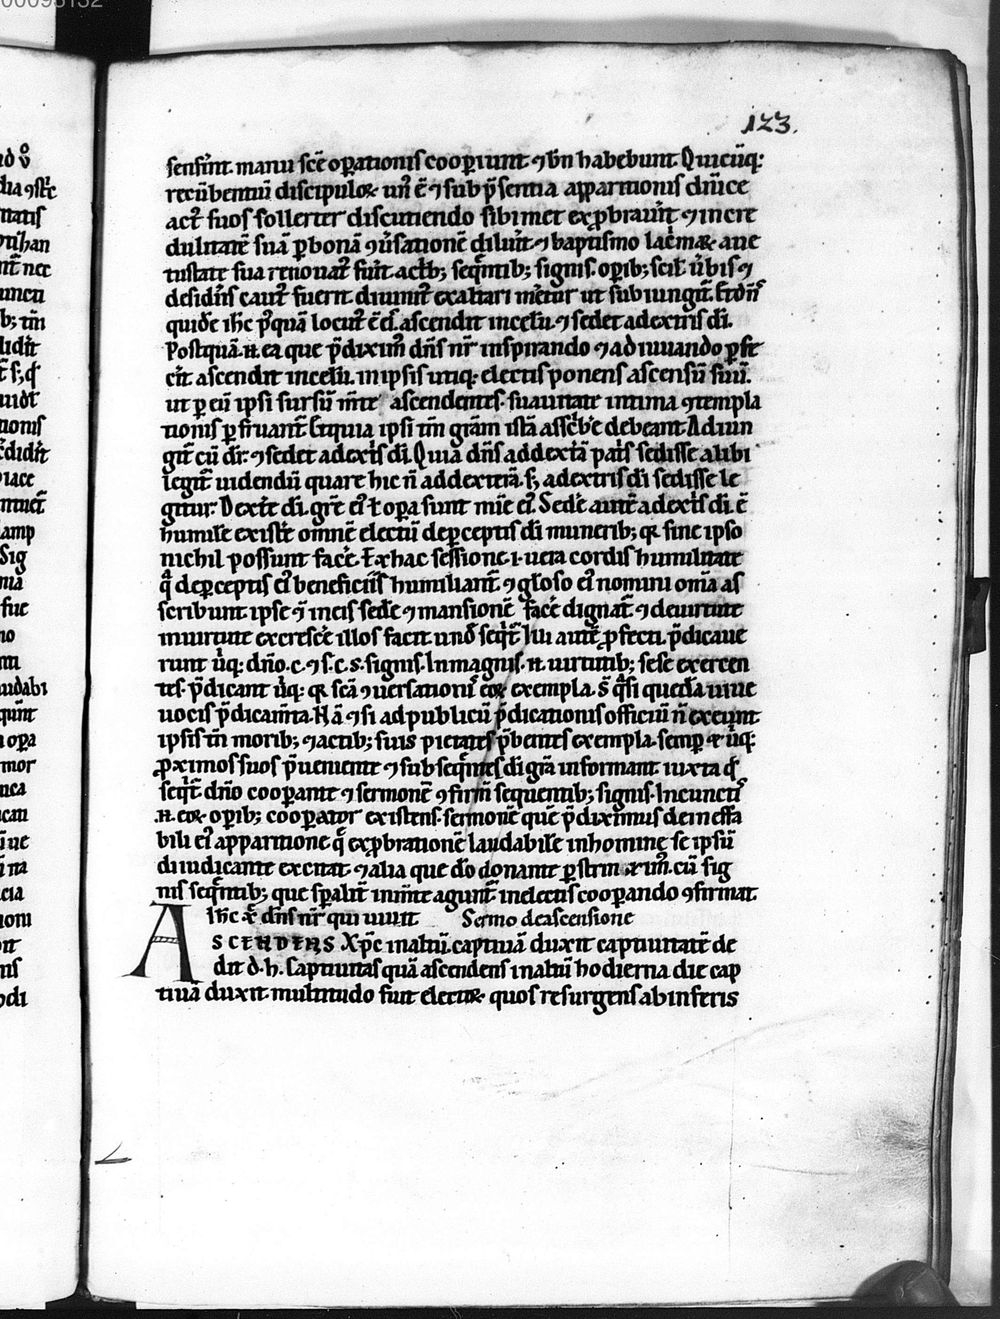 123.
senserint. manu scē oꝑationis cooꝑiunt ⁊ bn̄ habebunt. Quicūq;
recūbentiū discipuloꝝ un̄ ē ⁊ sub p̄sentia apparitionis diuīe
act᷒ suos sollerter discutiendo sibimet exꝓbrauit ⁊ incre
dulitatē suā ꝑ bonā ꝯūsationē diluit ⁊ baptismo lac̄maꝝ aue
tustate sua renouat᷒ fuit actib; seq̄ntib; signis. oꝑib; scil ūbis ⁊
desidīis caut᷒ fuerit diuinit᷒ exaltari
quidē ihc p᷒quā locut᷒ ē eis. ascendit in celū. ⁊ sedet adextris di.
Postquā .n. ea que p̄dixim᷒ dn̄s nr̄ inspirando ⁊ adiuuando ꝑfe
cit ascendit in celū. in ipsis utiq; electis ponens ascensū suū.
ut ꝑ eū ipsi sursū mēte ascendentes. suauitate intima ꝯtempla
tionis ꝑfruant᷒. Et quia ipsi tm̄ gr̄am istā asscͥbe debeant Adiun
git᷒ cū dr̄. ⁊ sedet adextis di. Quia dn̄s ad dextā pat̄s sedisse alibi
legit᷒ uidendū quare hic n̄ ad dexterā. s; adextris di sedisse le
gitur. Dext̄e di. gr̄e ei᷒ ł oꝑa sunt mīe ei᷒. Sedē autē adext̄s di. ē
humilē existe omnē electū de ꝑceptis di munerib; qꝛ sine ipso
nichil possunt facē. Ex hac sessione .i. uera cordis humilitate
q̄ de ꝑceptis ei᷒ beneficiis humiliant᷒ ⁊ gloso ei᷒ nomini om̄ia as
scribunt ipse q̄ in eis sedē ⁊ mansionē facē dignat᷒ ⁊ de uirtute
in uirtute excrescē illos facit unde seqt᷒ Illi autē ꝓfecti. p̄dicaue
runt ūq;. dño. c. ⁊ s. c. s. signis. In magnis .n. uirtutib; sese exercen
tes. p̄dicant ūq; qꝛ scā ꝯuersationis eoꝝ exempla. s̄ q̄si quedā uiue
uocis p̄dicam̄ta. Nā ⁊ si ad publicū p̄dicationis officiū n̄ exeunt
ipsis tn̄ morib; ⁊ actib; suis pietatis p̄bentes exempla. semꝑ ⁊ ūq;
ꝓximos suos p̄ueniente ⁊ subseq̄ntes di gr̄a informant. iuxta qd̄
seqt᷒ dño cooꝑante ⁊ sermonē ꝯfirm̄ sequentib; signis. In cunctis
.n. eoꝝ oꝑib; cooꝑator existens. sermonē quē p̄diximus de ineffa
bili ei᷒ apparitione q̄ exꝓbrationē laudabilē in homine se ipsū
diiudicante excitat. ⁊ alia que do donante ꝑstrinxim᷒. cū sig
nis seq̄ntib; que sp̄alit᷒ in mēte agunt᷒ in electis cooꝑando ꝯfirmat.
Ihc xc dn̄s nr̄ qui uiuit Sermo de ascensione
ASCENDENS Xp̄c in altū. captiuā duxit captiuitatē de
dit d. h. Captiuitas quā ascendens in altū hodierna die cap
tiuā duxit multitudo fuit electoꝝ quos resurgens ab inferis